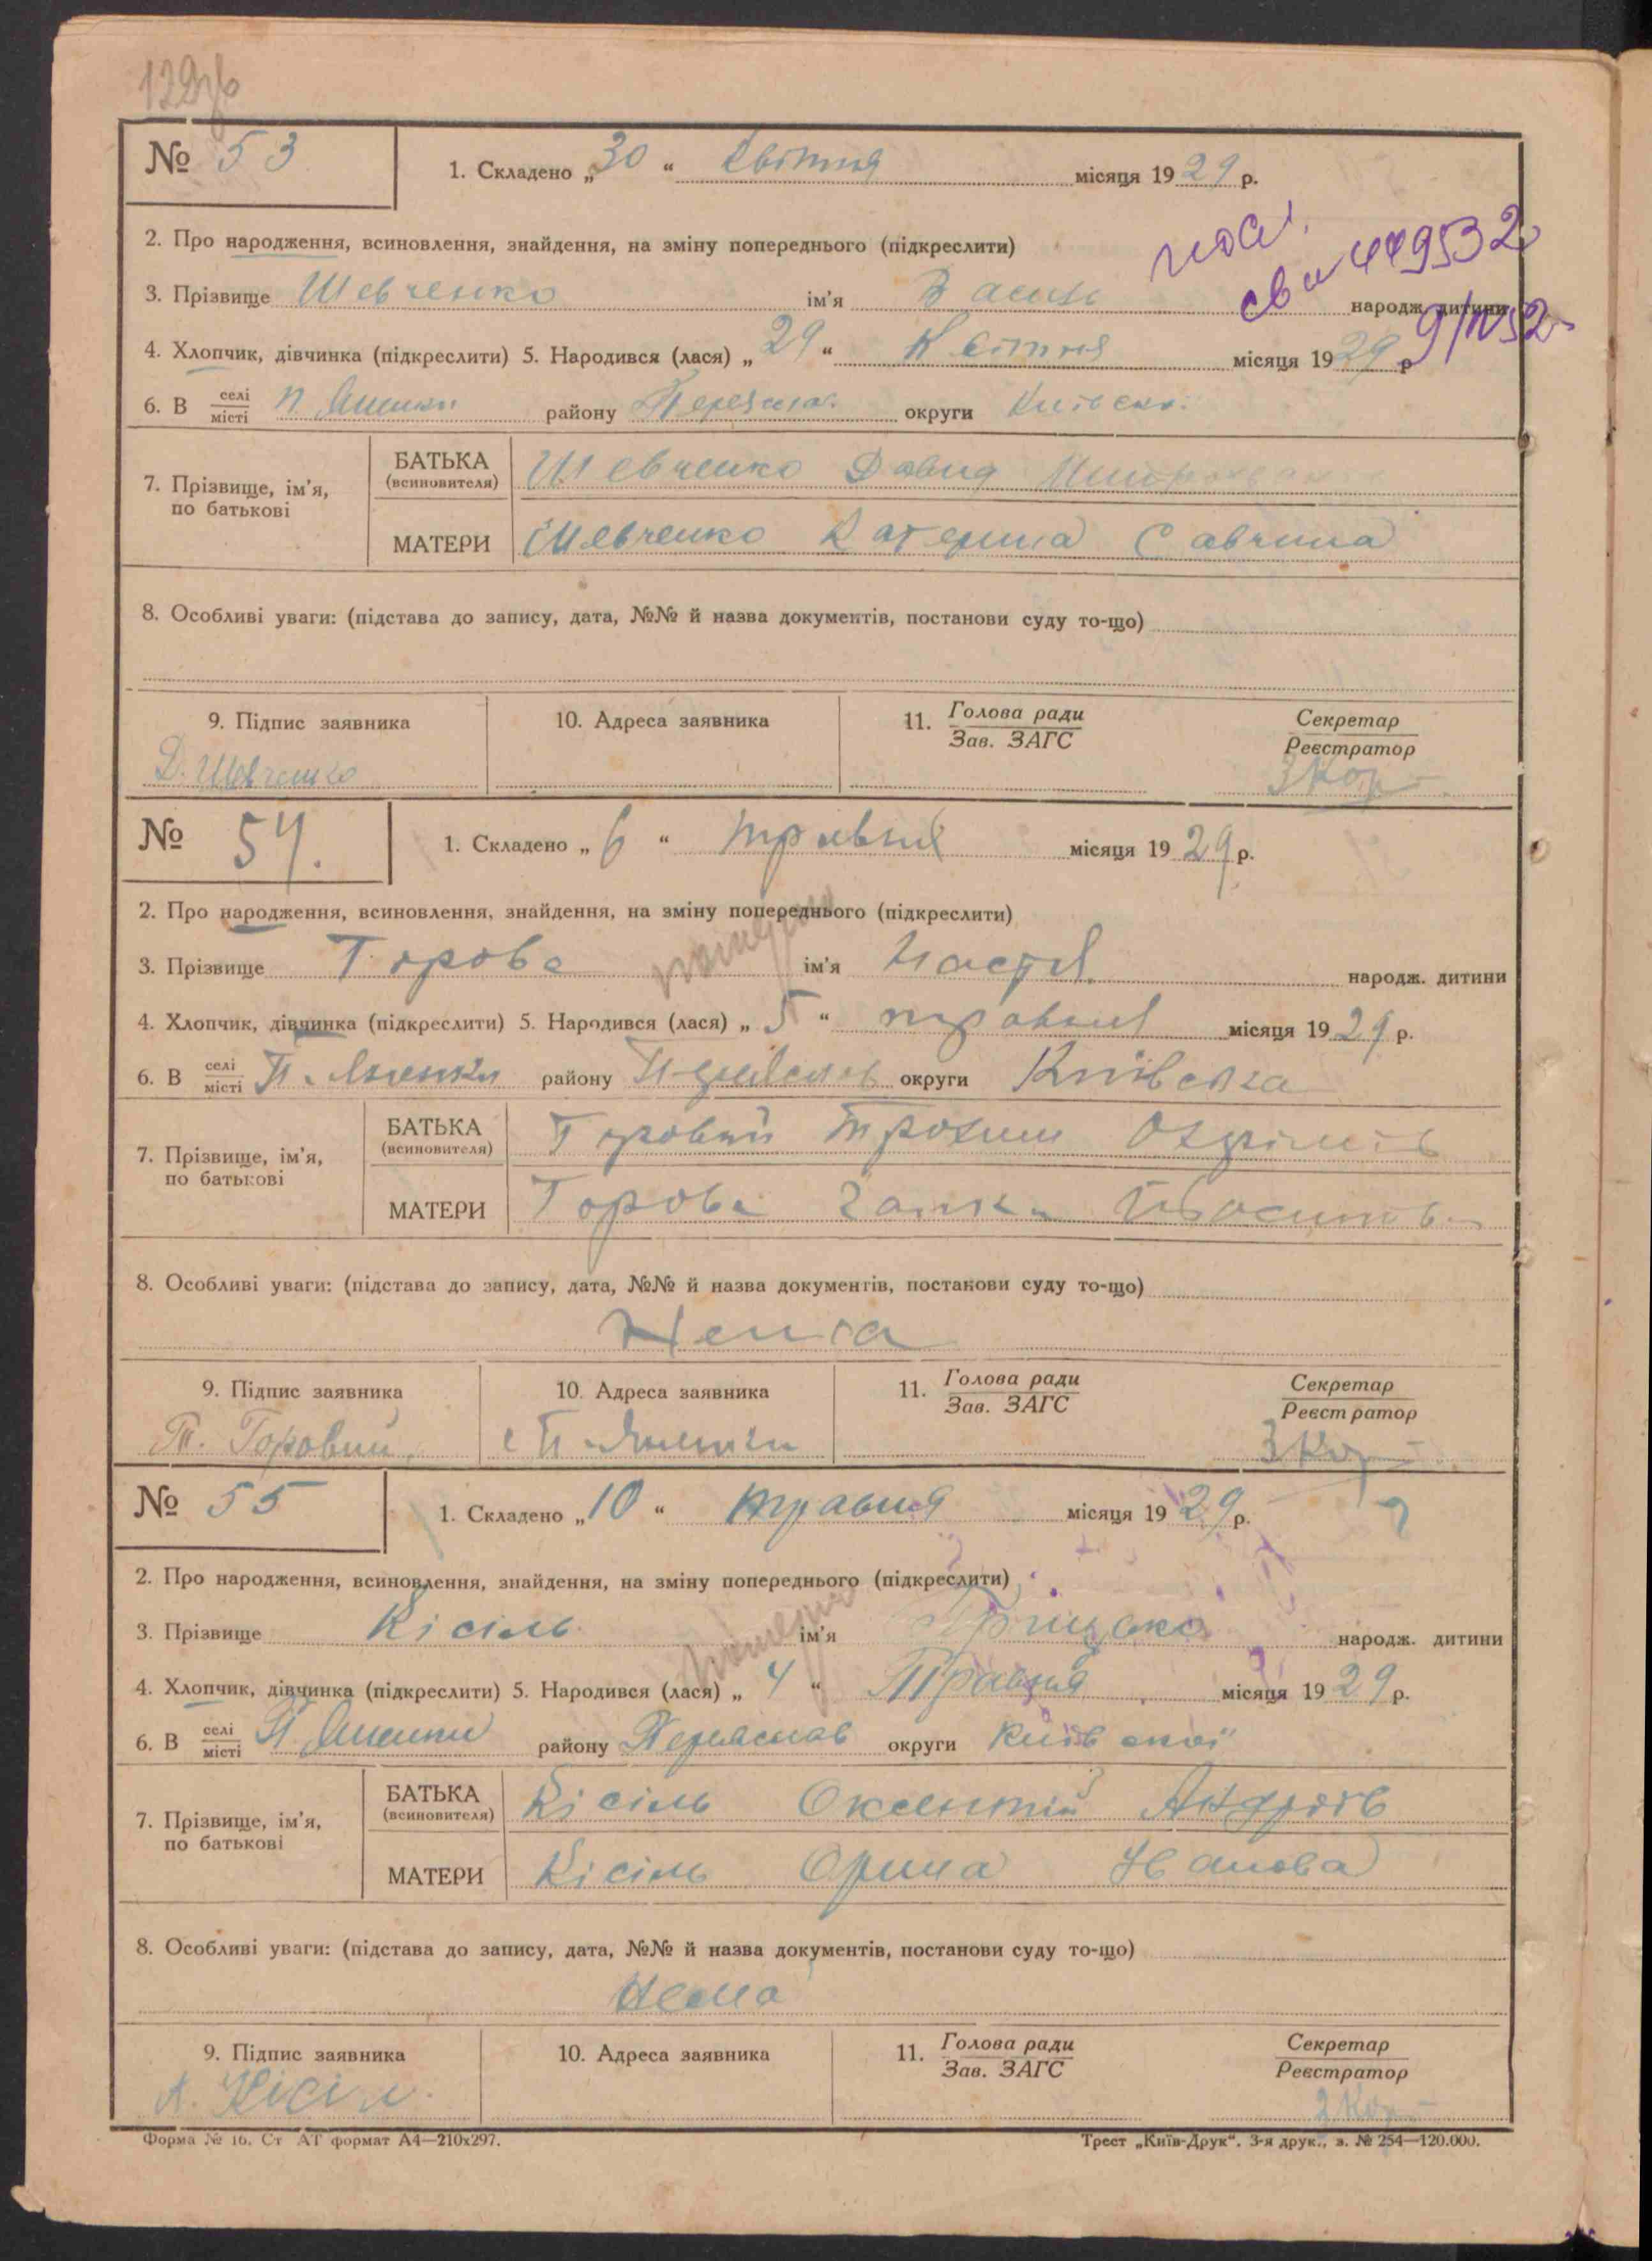 № 53
1. Складено „30“ Квітня місяця 1929 р.
2. Про народження, всиновлення, знайдення, на зміну попереднього (підкреслити)
3. Прізвище Шевченко ім'я Василь народж. дитини
4. Хлопчик, дівчинка (підкреслити) 5. Народився (лася) „29“ Квітня місяця 1929 р.
6. В селі/місті району округи Київськ.
7. Прізвище, ім'я, по батькові
БАТЬКА (всиновителя) Шевченко Давид
МАТЕРИ Шевченко Катерина Савчина
8. Особливі уваги: (підстава до запису, дата, №№ й назва документів, постанови суду то-що)
9. Підпис заявника
10. Адреса заявника
11. Голова ради/Зав. ЗАГС
Секретар/Реєстратор
Д. Шевченко
№ 54.
1. Складено „6“ травня місяця 1929 р.
2. Про народження, всиновлення, знайдення, на зміну попереднього (підкреслити)
3. Прізвище Горова ім'я Настя народж. дитини
4. Хлопчик, дівчинка (підкреслити) 5. Народився (лася) „5“ травня місяця 1929 р.
6. В селі/місті району округи Київська
7. Прізвище, ім'я, по батькові
БАТЬКА (всиновителя) Горовий Трохим
МАТЕРИ Горова
8. Особливі уваги: (підстава до запису, дата, №№ й назва документів, постанови суду то-що)
Нема
9. Підпис заявника
10. Адреса заявника
11. Голова ради/Зав. ЗАГС
Секретар/Реєстратор
Т. Горовий
№ 55
1. Складено „10“ травня місяця 1929 р.
2. Про народження, всиновлення, знайдення, на зміну попереднього (підкреслити)
3. Прізвище Кісіль ім'я Гріцько народж. дитини
4. Хлопчик, дівчинка (підкреслити) 5. Народився (лася) „4“ Травня місяця 1929 р.
6. В селі/місті району Переяслав округи Київської
7. Прізвище, ім'я, по батькові
БАТЬКА (всиновителя) Кісіль Оксентій Андріїв
МАТЕРИ Кісіль Орина Іванова
8. Особливі уваги: (підстава до запису, дата, №№ й назва документів, постанови суду то-що)
Нема
9. Підпис заявника
10. Адреса заявника
11. Голова ради/Зав. ЗАГС
Секретар/Реєстратор
А. Кісіл.
Форма № 16. Ст АТ формат А4—210х297.
Трест „Київ-Друк“. 3-я друк., з. № 254—120.000.